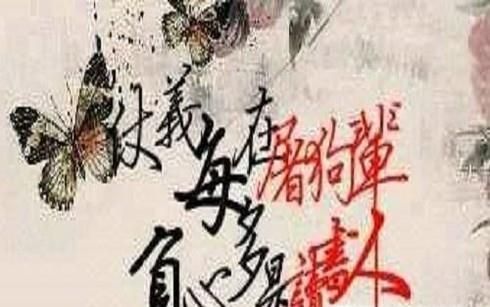 仗義每在屠狗輩
負心多是讀書人